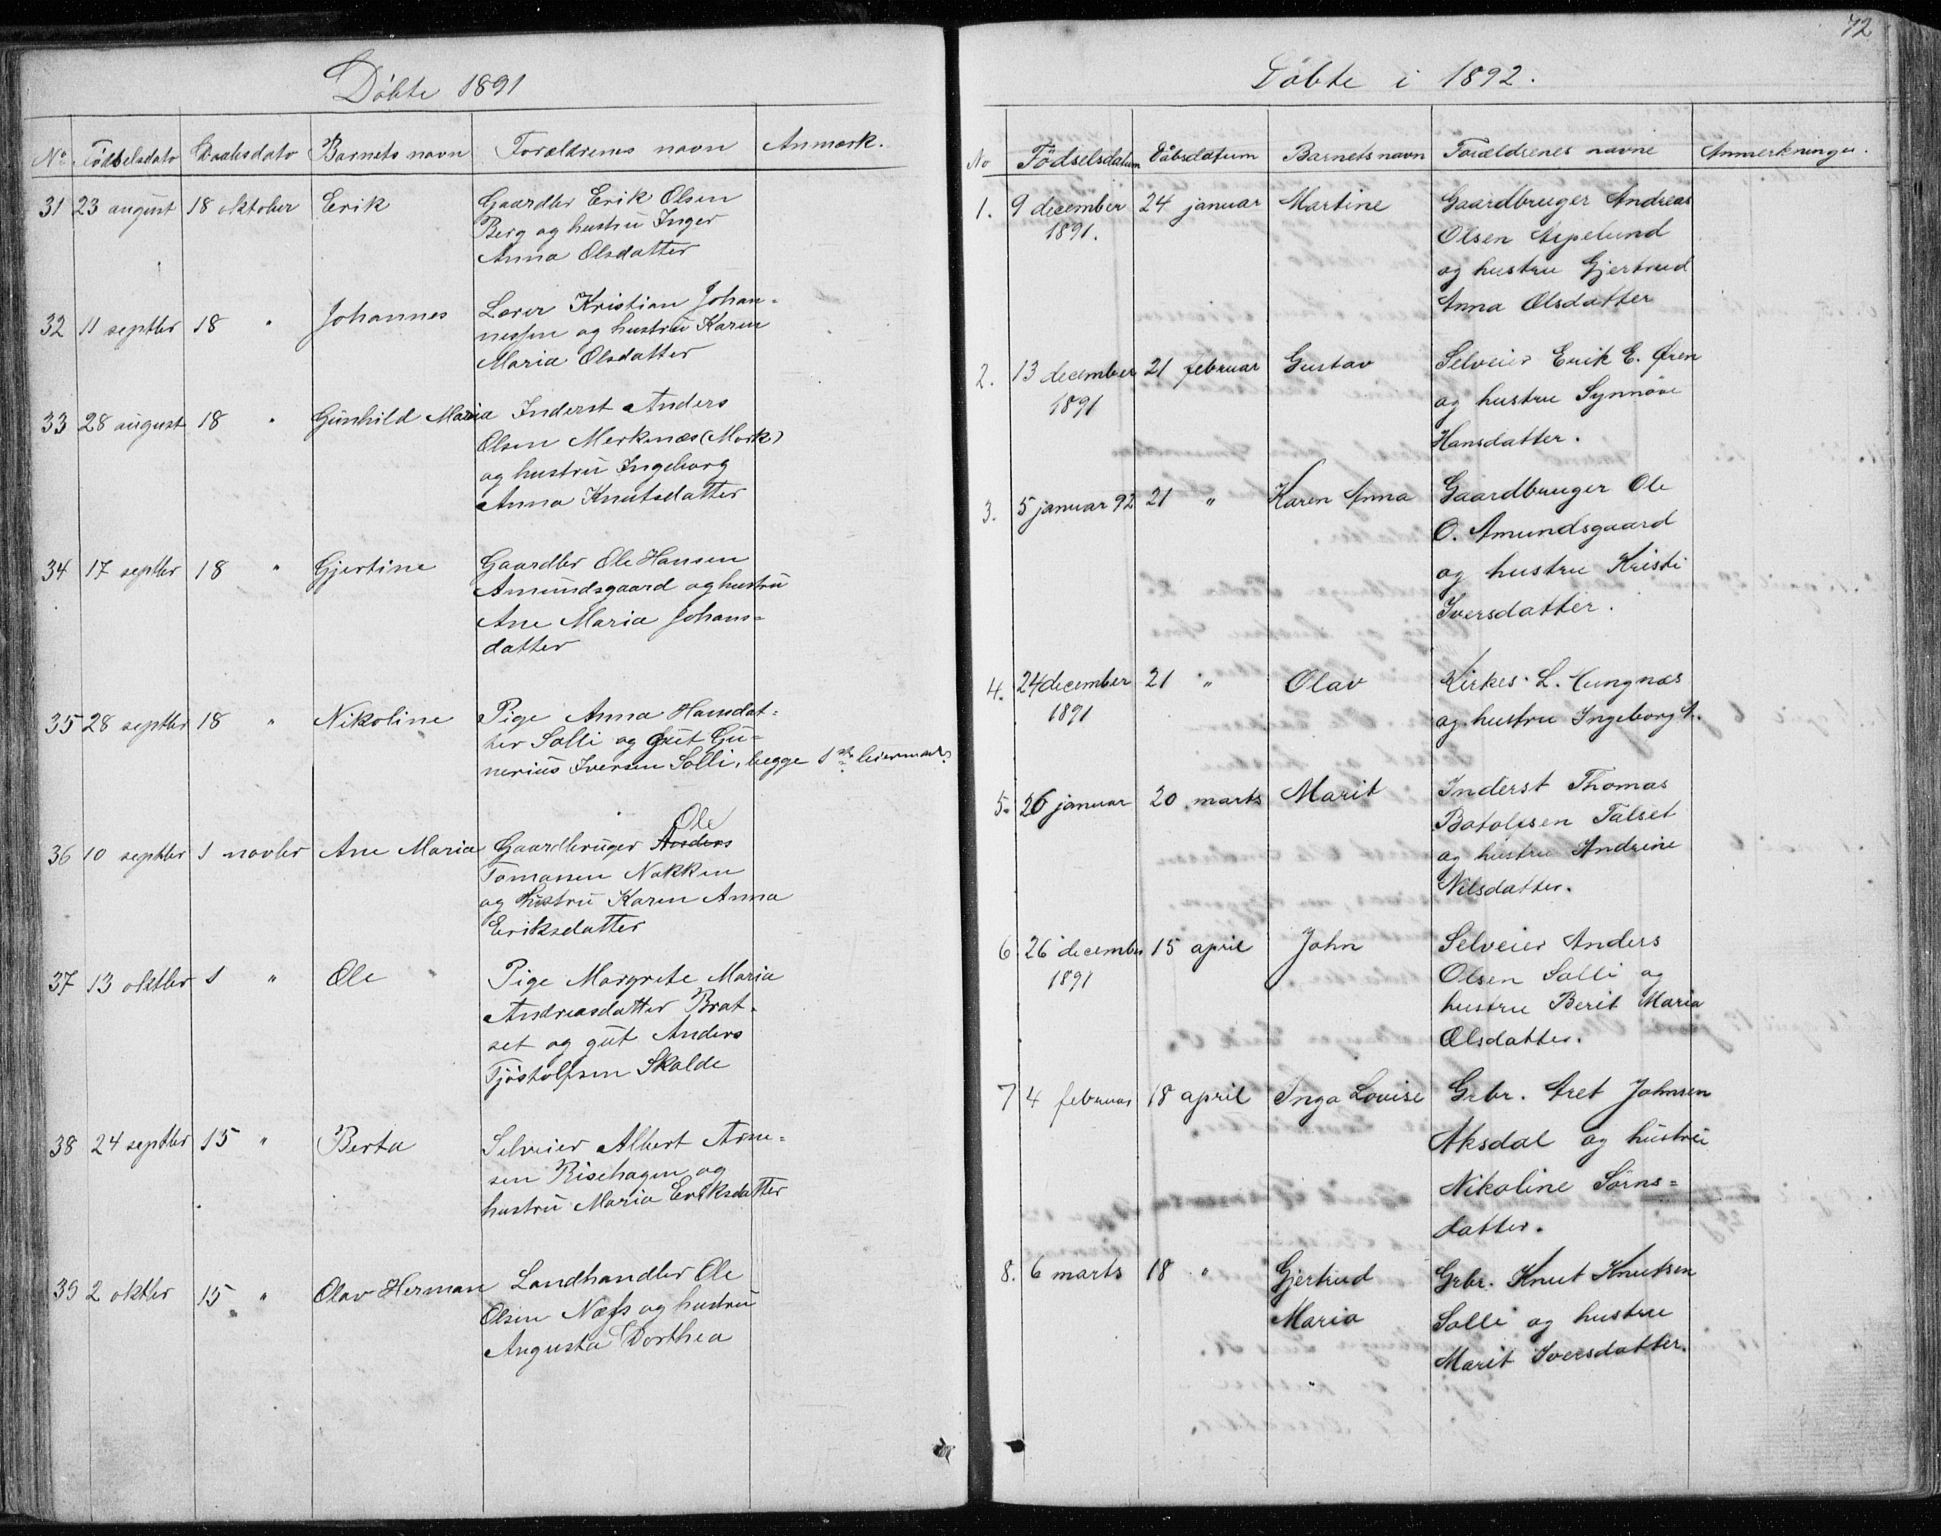 Döbte 1891
No Födselsdato Daabsdato Barnets navn Forældrenes navn Anmærk.
31 23 august 18 oktober Erik Gaardbr Erik Olsen
Berg og hustru Inger
Anna Olsdatter
32 11 septbr 18 " Johannes Lærer Kristian Johan-
nessen og hustru Karen
Maria Olsdatter
33 28 august 18 " Gunhild Maria Inderst Anders
Olsen Merknæs (Mork)
og hustru Ingeborg
Anna Knutsdatter
34 17 septbr 18 " Gjertine Gaardbr Ole Hansen
Amundsgaard og hustru
Ane Maria Johans-
datter
35 28 septbr 18 " Nikoline Pige Anna Hansdat-
ter Solli og gut Gu-
nerius Iversen Solli, begge 1ste leiermaal.
Ole
36 10 septbr 1 novbr Ane Maria Gaardbruger Anders
Tomassen Nakken
og hustru Karen Anna
Eriksdatter
37 13 oktbr 1 " Ole Pige Margrete Maria
Andreasdatter Brat-
set og gut Anders
Tjöstolfsen Skalde
38 24 septbr 15 " Berta Selveier Albert Arne-
sen Risehagen og
hustru Maria Eriksdatter
39 2 oktbr 15 " Olav Herman Landhandler Ole
Olsen Næss og hustru
Augusta Dorthea
72
Döbte i 1892.
No Födselsdatum Dåbsdatum Barnets navn Forældrenes navne Anmerkninger.
1. 9 december 24 januar Martine Gaardbruger Andreas
1891. Olsen Aspelund
og hustru Gjertrud
Anna Olsdatter
2. 13 december 21 februar Gustav Selveier Erik E. Øren
1891 og hustru Synnöve
Hansdatter.
3. 5 januar 92 21 " Karen Anna Gaardbruger Ole
O. Amundsgaard
og hustru Kristi
Iversdatter.
4. 24 december 21 " Olav Kirkes. L.
1891 og hustru Ingeborg A.
5. 26 januar 20 marts Marit Inderst Thomas
Talset
og hustru Andrine
Nilsdatter.
6. 26 december 15 april John Selveier Anders
1891 Olsen Solli og
hustru Berit Maria
Olsdatter.
7 4 februar 18 april Inga Lovise Grbr. Aret Johnsen
Aksdal og hustru
Nikoline Sörns-
datter.
8. 6 marts 18 " Gjertrud Grbr. Knut Knutsen
Maria Solli og hustru
Marit Iversdatter.